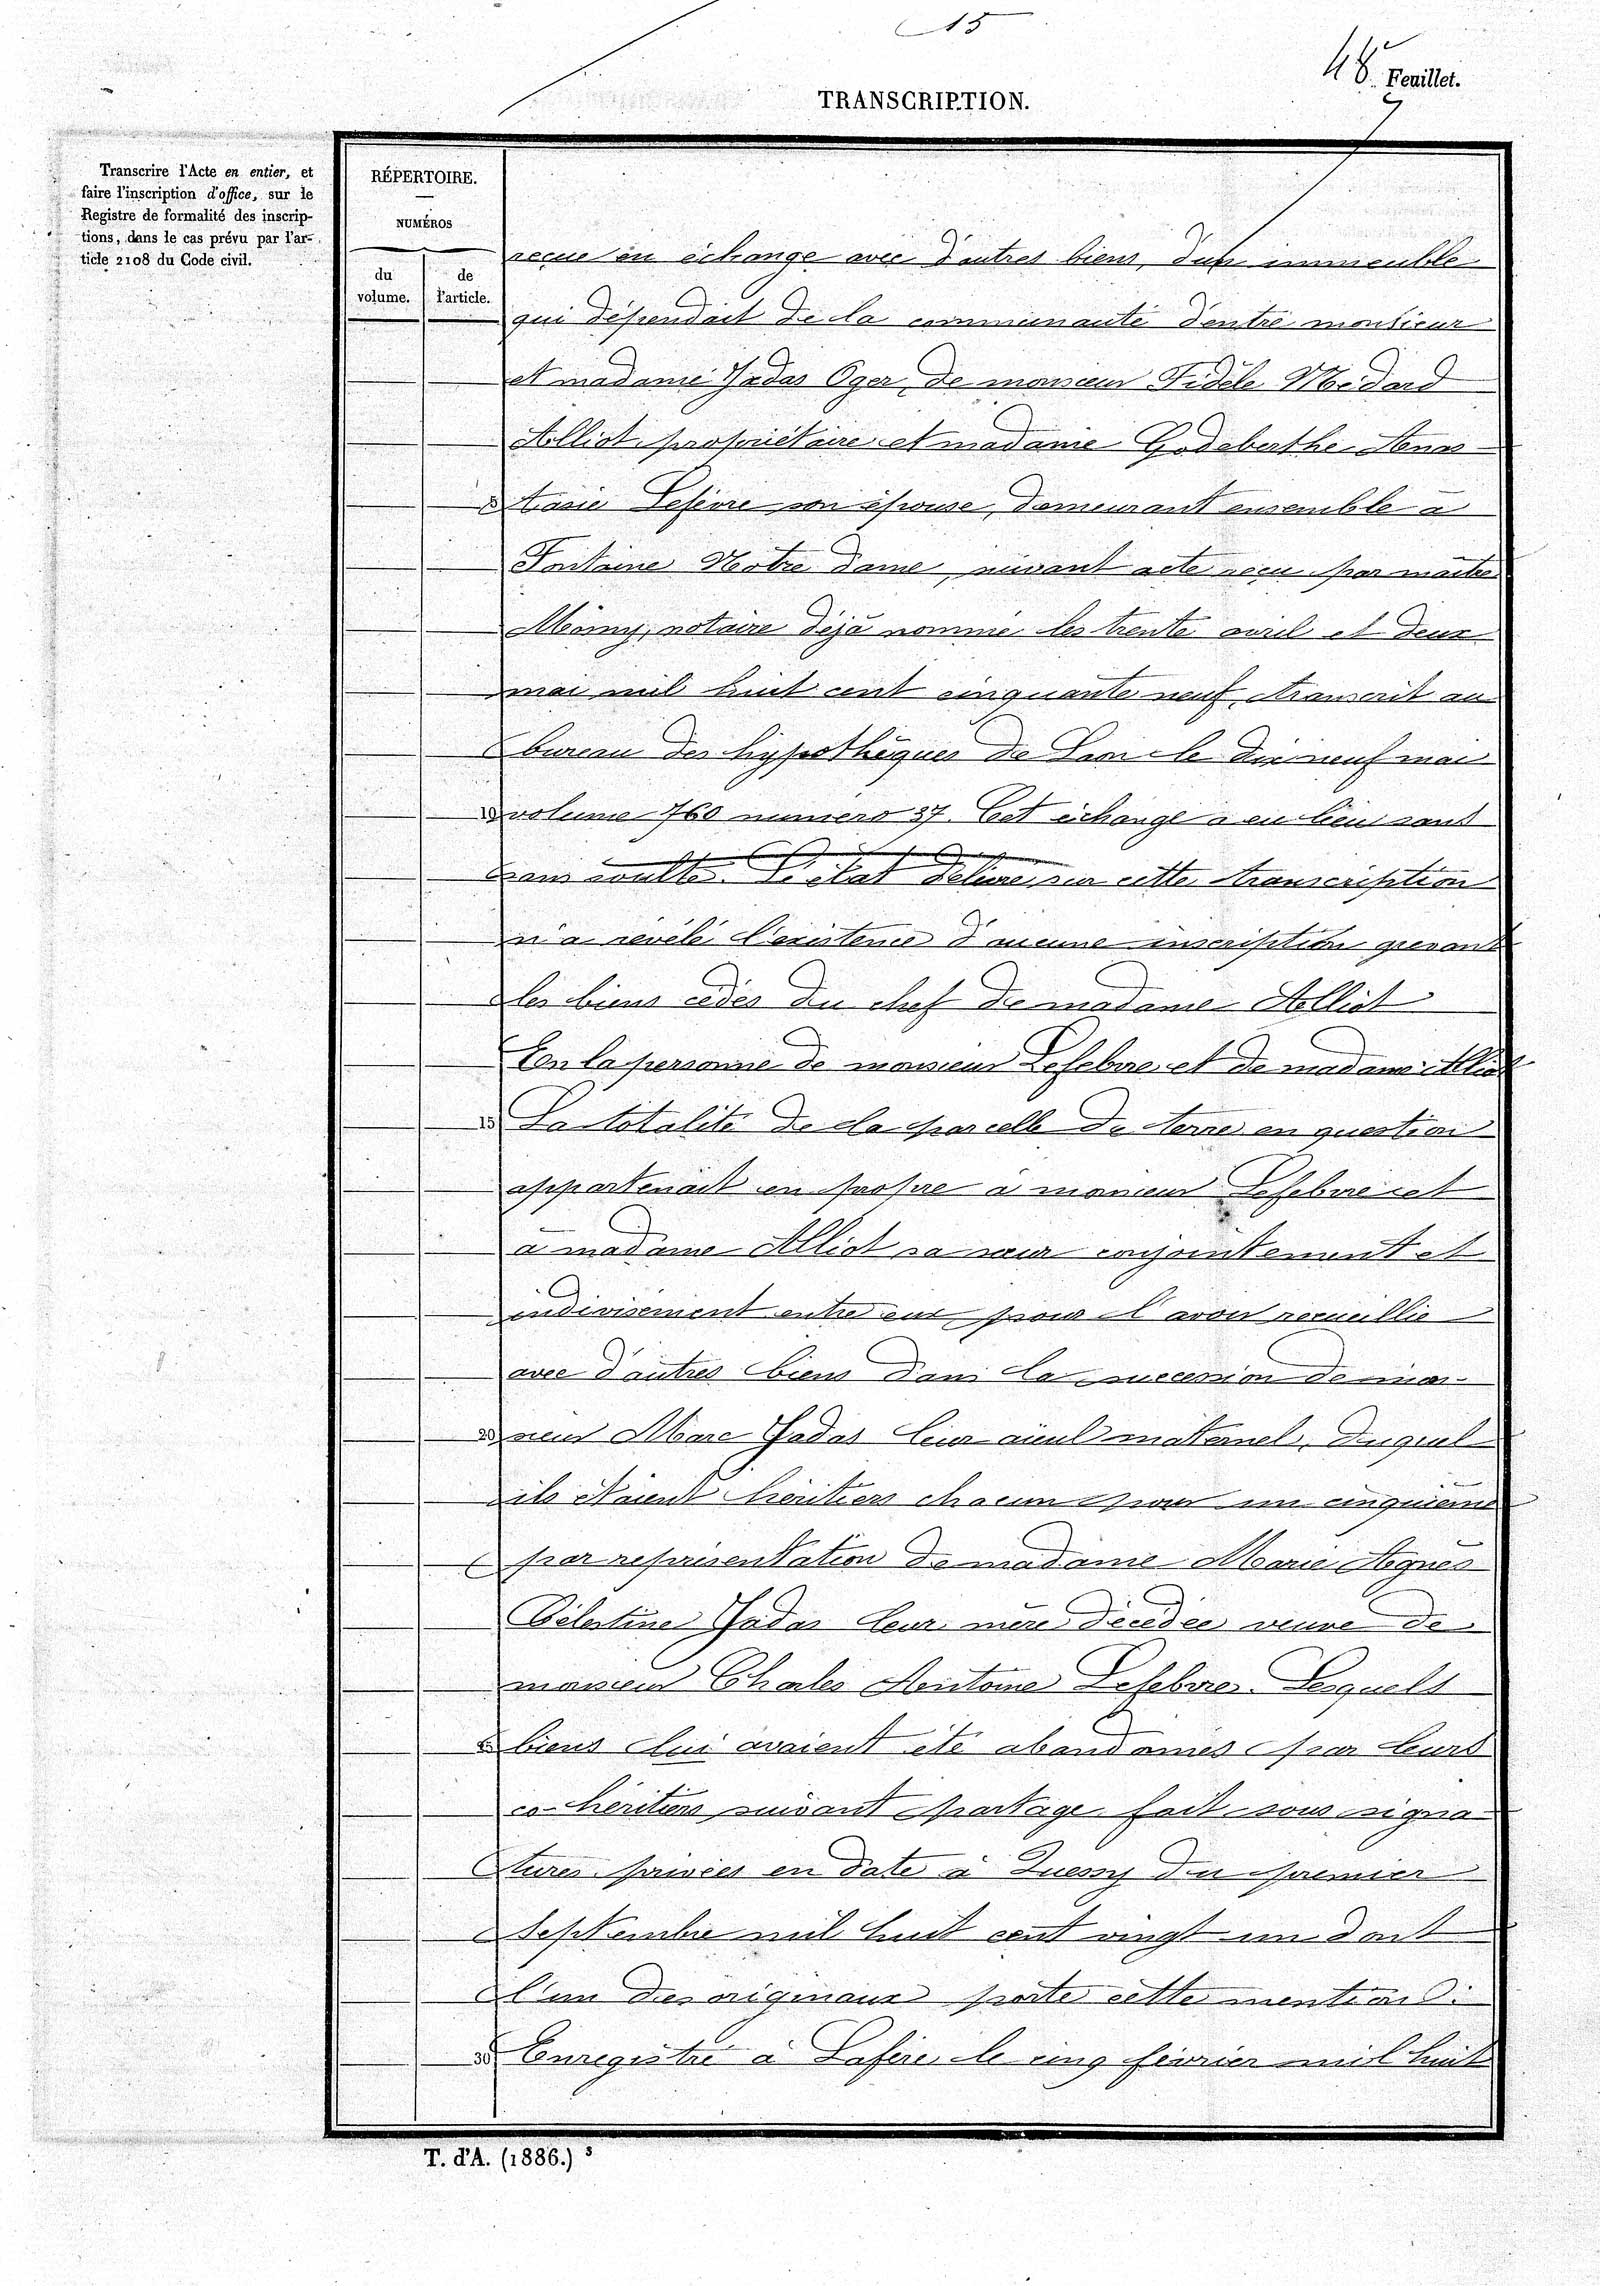 15
48e Feuillet.
TRANSCRIPTION.
Transcrire l'Acte en entier, et
faire l'inscription d'office, sur le
Registre de formalité des inscrip-
tions, dans le cas prévu par l'ar-
ticle 2108 du Code civil.
RÉPERTOIRE.
NUMÉROS
du volume.
de l'article.
reçue en échange avec d'autres biens, d'un immeuble
qui dépendait de la communauté d'entre monsieur
et madame Jadas Oger, de monsieur Fidèle Médard
Alliot, propriétaire et madame Godeberthe Anas-
5 tasie Lefèvre son épouse, demeurant ensemble à
Fontaine Notre Dame, suivant acte reçu par maître
notaire déjà nommé les trente avril et deux
mai mil huit cent cinquante neuf, transcrit au
bureau des hypothèques de Laon le dix neuf mai
10 volume 760 numéro 37. Cet échange a eu lieu sans
sans soulte. L'état délivré sur cette transcription
n'a révélé l'existence d'aucune inscription grevant
les biens cédés du chef de madame Alliot
En la personne de monsieur Lefebvre et de madame Alliot
15 La totalité de la parcelle de terre en question
appartenait en propre à monsieur Lefebvre et
à madame Alliot sa sœur conjointement et
indivisément entre eux pour l'avoir recueillie
avec d'autres biens dans la succession de mon-
20 sieur Marc Jadas leur aïeul maternel, duquel
ils étaient héritiers chacun pour un cinquième
par représentation de madame Marie Agnès
Célestine Jadas leur mère décédée veuve de
monsieur Charles Antoine Lefebvre. Lesquels
25 biens lui avaient été abandonnés par leurs
co-héritiers suivant partage fait sous signa-
tures privées en date à Quessy du premier
septembre mil huit cent vingt un dont
l'un des originaux porte cette mention :
30 Enregistré à Lafère le cinq février mil huit
T. d'A. (1886.) 3